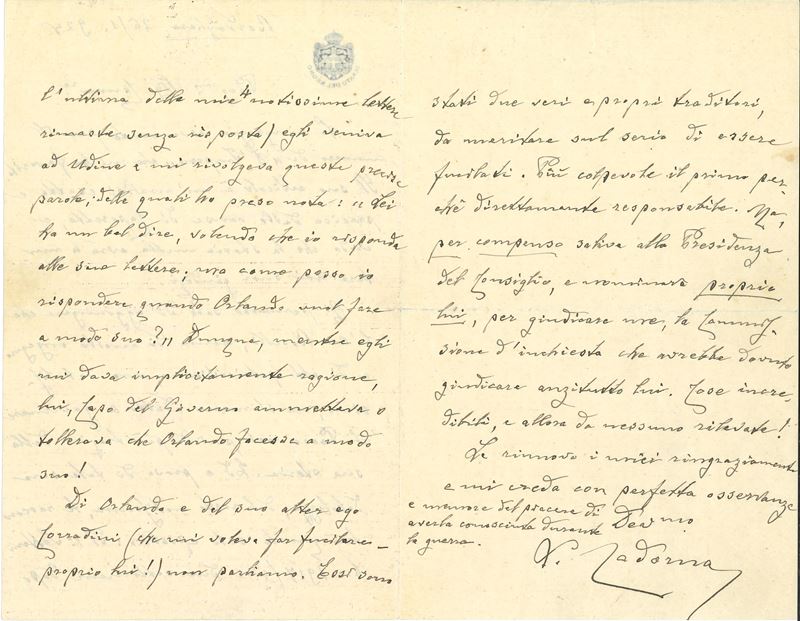 l'ultima delle mie 4 notissime lettere
rimaste senza risposta) egli veniva
ad Udine e mi rivolgeva queste precise
parole, delle quali ho preso nota: "Lei
ha un bel dire, volendo che io risponda
alle sue lettere; ma come posso io
rispondere quando Orlando vuol fare
a modo suo?" Dunque, mentre egli
mi dava implicitamente ragione,
lui, Capo del Governo ammetteva o
tollerava che Orlando facesse a modo
suo!
Di Orlando e del suo alter ego
Corradini (che mi voleva far fucilare -
proprio lui!) non parliamo. Essi sono
stati due veri e propri traditori,
da meritare sul serio di essere
fucilati. Più colpevole il primo per-
chè direttamente responsabile. Ma,
per compenso saliva alla Presidenza
del Consiglio, e nominava proprio
lui, per giudicare me, la Commis-
sione d'inchiesta che avrebbe dovuto
giudicare anzitutto lui. Cose incre-
dibili, e allora da nessuno rilevate!
Le rinnovo i miei ringraziamenti
e mi creda con perfetta osservanza
e memore del piacere di
averla conosciuta durante
la guerra.
Dev mo
L. Cadorna